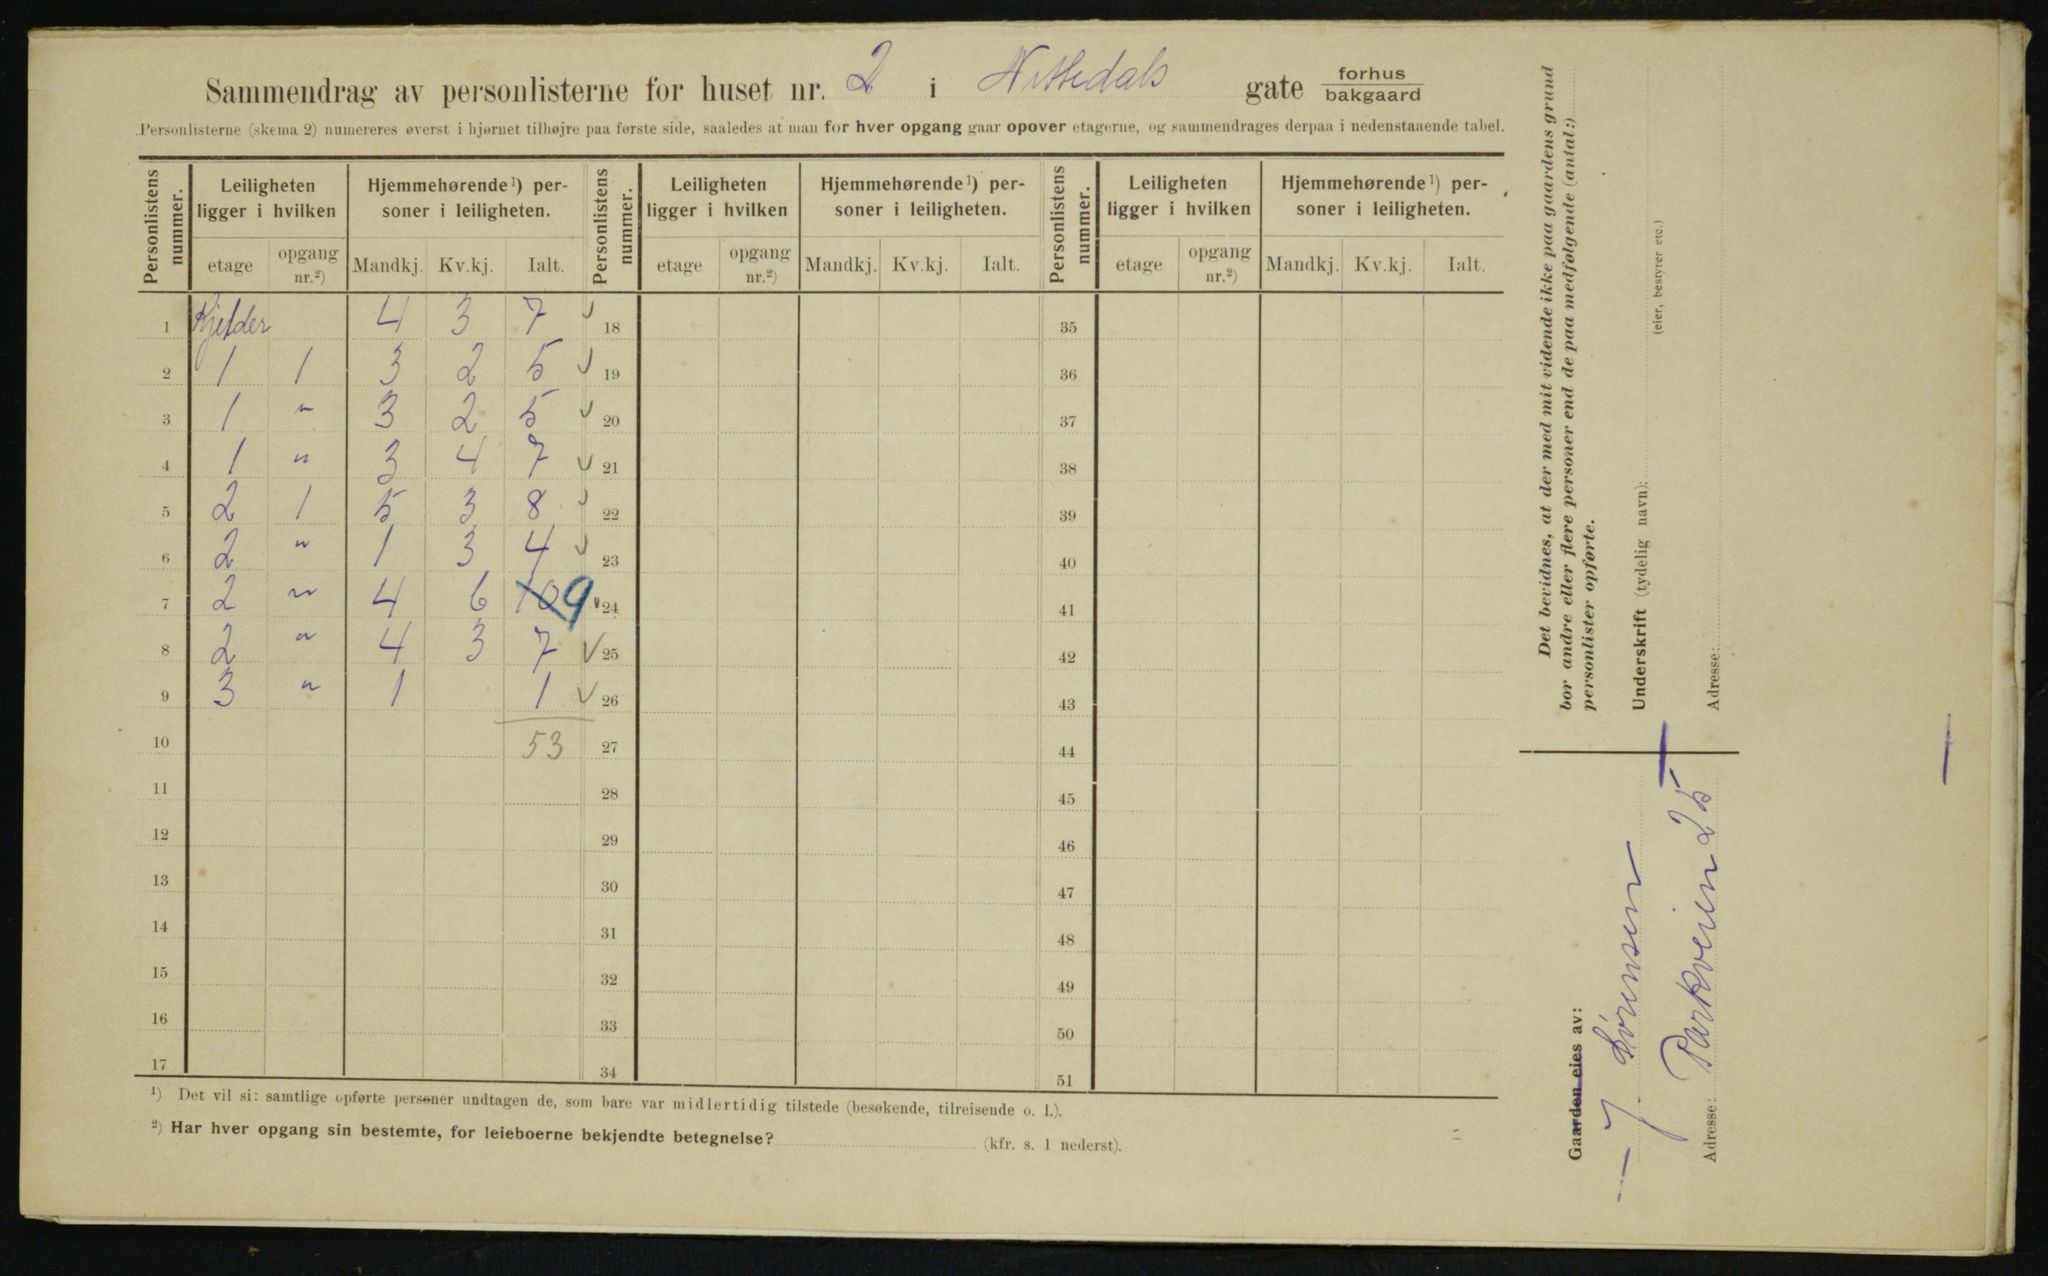 Sammendrag av personlisterne for huset nr. 2 i Nittedals gate forhus bakgaard
Personlisterne (skema 2) numereres øverst i hjørnet tilhøjre paa første side, saaledes at man for hver opgang gaar opover etagerne, og sammendrages derpaa i nedenstaaende tabel.
Personlistens nummer. Leiligheten ligger i hvilken Hjemmehørende ¹) personer i leiligheten. Personlistens nummer. Leiligheten ligger i hvilken Hjemmehørende ¹) personer i leiligheten. Personlistens nummer. Leiligheten ligger i hvilken Hjemmehørende ¹) personer i leiligheten.
etage opgang nr.²) Mandkj. Kv.kj. Ialt. etage opgang nr.²) Mandkj. Kv.kj. Ialt. etage opgang nr.²) Mandkj. Kv.kj. Ialt.
1 Kjelder 4 3 7 ✓ 18 35
2 1 1 3 2 5 ✓ 19 36
3 1 " 3 2 5 ✓ 20 37
4 1 " 3 4 7 ✓ 21 38
5 2 1 5 3 8 ✓ 22 39
6 2 " 1 3 4 ✓ 23 40
7 2 " 4 6 10 9 ✓ 24 41
8 2 " 4 3 7 ✓ 25 42
9 3 " 1 1 ✓ 26 43
10 53 27 44
11 28 45
12 29 46
13 30 47
14 31 48
15 32 49
16 33 50
17 34 51
¹) Det vil si: samtlige opførte personer undtagen de, som bare var midlertidig tilstede (besøkende, tilreisende o. l.).
²) Har hver opgang sin bestemte, for leieboerne bekjendte betegnelse? (kfr. s. 1 nederst).
Det bevidnes, at der med mit vidende ikke paa gaardens grund
bor andre eller flere personer end de paa medfølgende (antal:)
personlister opførte.
Underskrift (tydelig navn):
(eier, bestyrer etc.)
Adresse:
Gaarden eies av:
J. Sörensen
Adresse: Parkveien 25